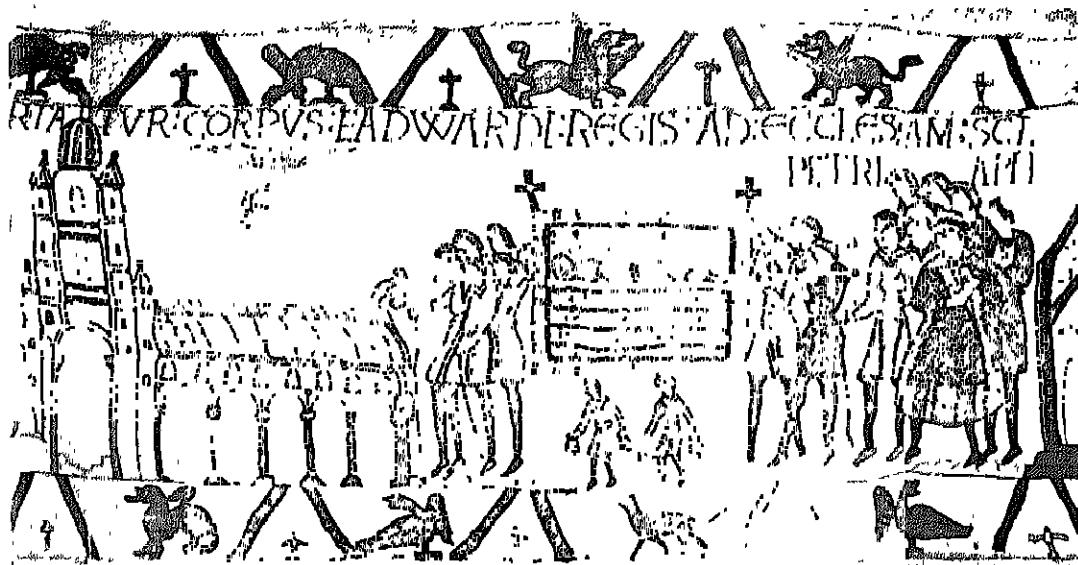 RTATVR:CORPVS:EADWARDI:REGIS:AD:ECCLESIAM:SCI
PETRI APLI